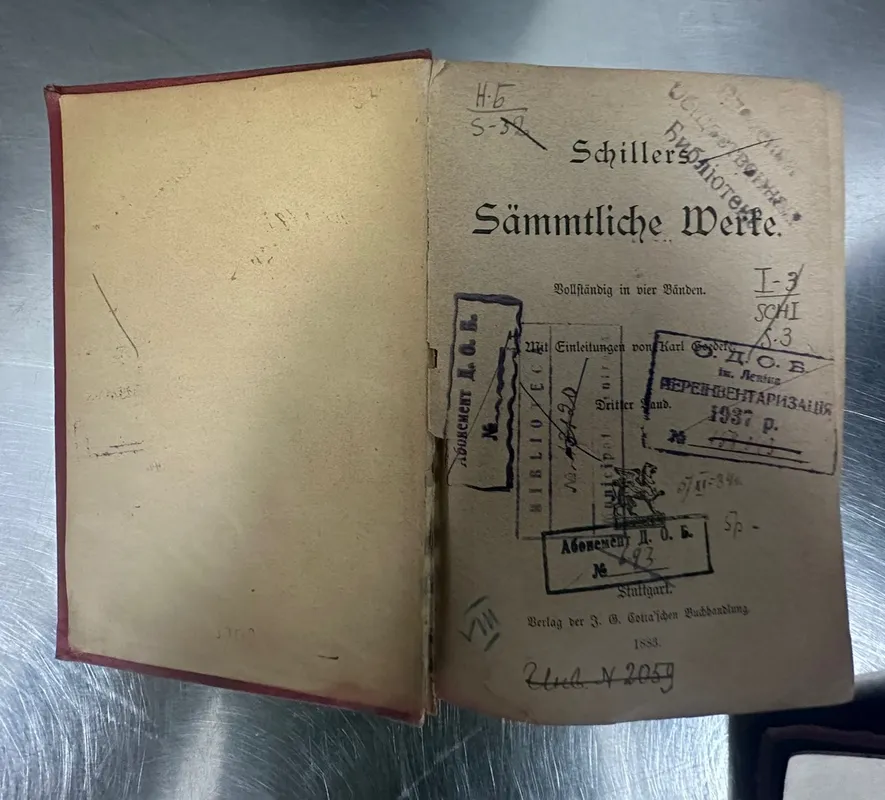 Н-Б
S-32
Общественная
Библиотека
Schillers
Sämmtliche Werke.
Vollständig in vier Bänden.
I-3
SCHI
S.3
Mit Einleitungen von Karl Goedeke.
Dritter Band.
Абонемент Д. О. Б.
№
BIBLIOTECA
О. Д. О. Б.
ім. Леніна
ПЕРЕІНВЕНТАРИЗАЦІЯ
1937 р.
№
Абонемент Д. О. Б.
№ 693
Stuttgart.
Verlag der J. G. Cotta'schen Buchhandlung.
1883.
VIII
Инв. N 2059